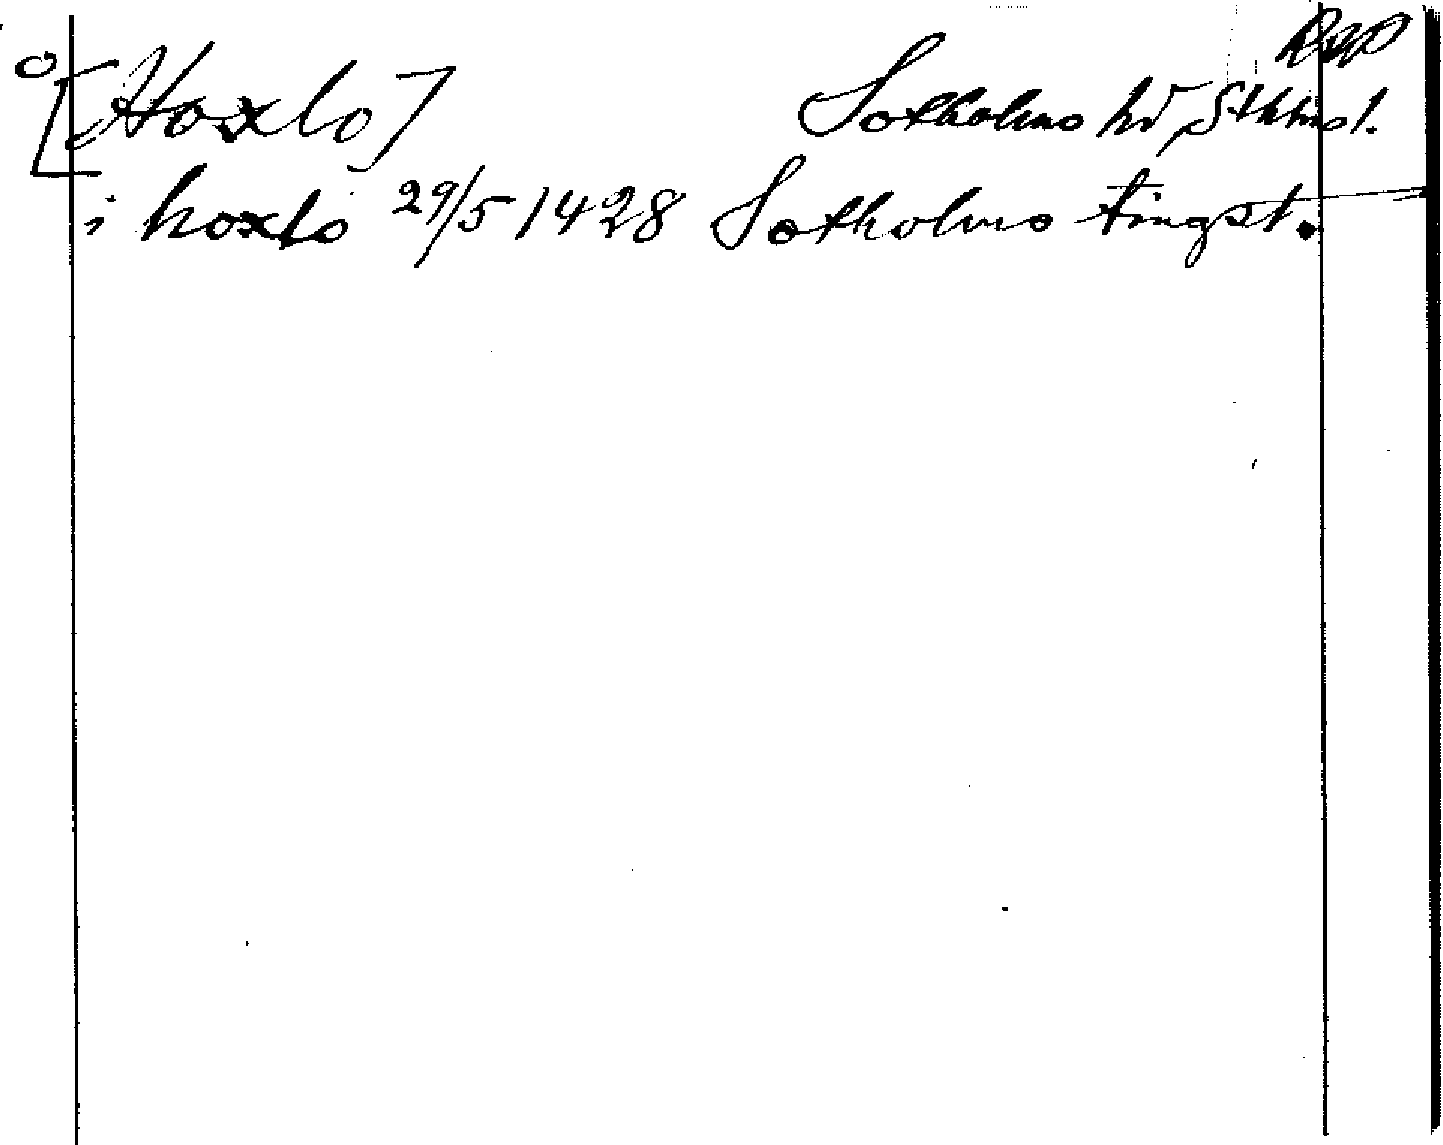 [Hoxlo] Sotholms hd, Sthms l.
i hoxlo 29/5 1428 Sotholms tingst.